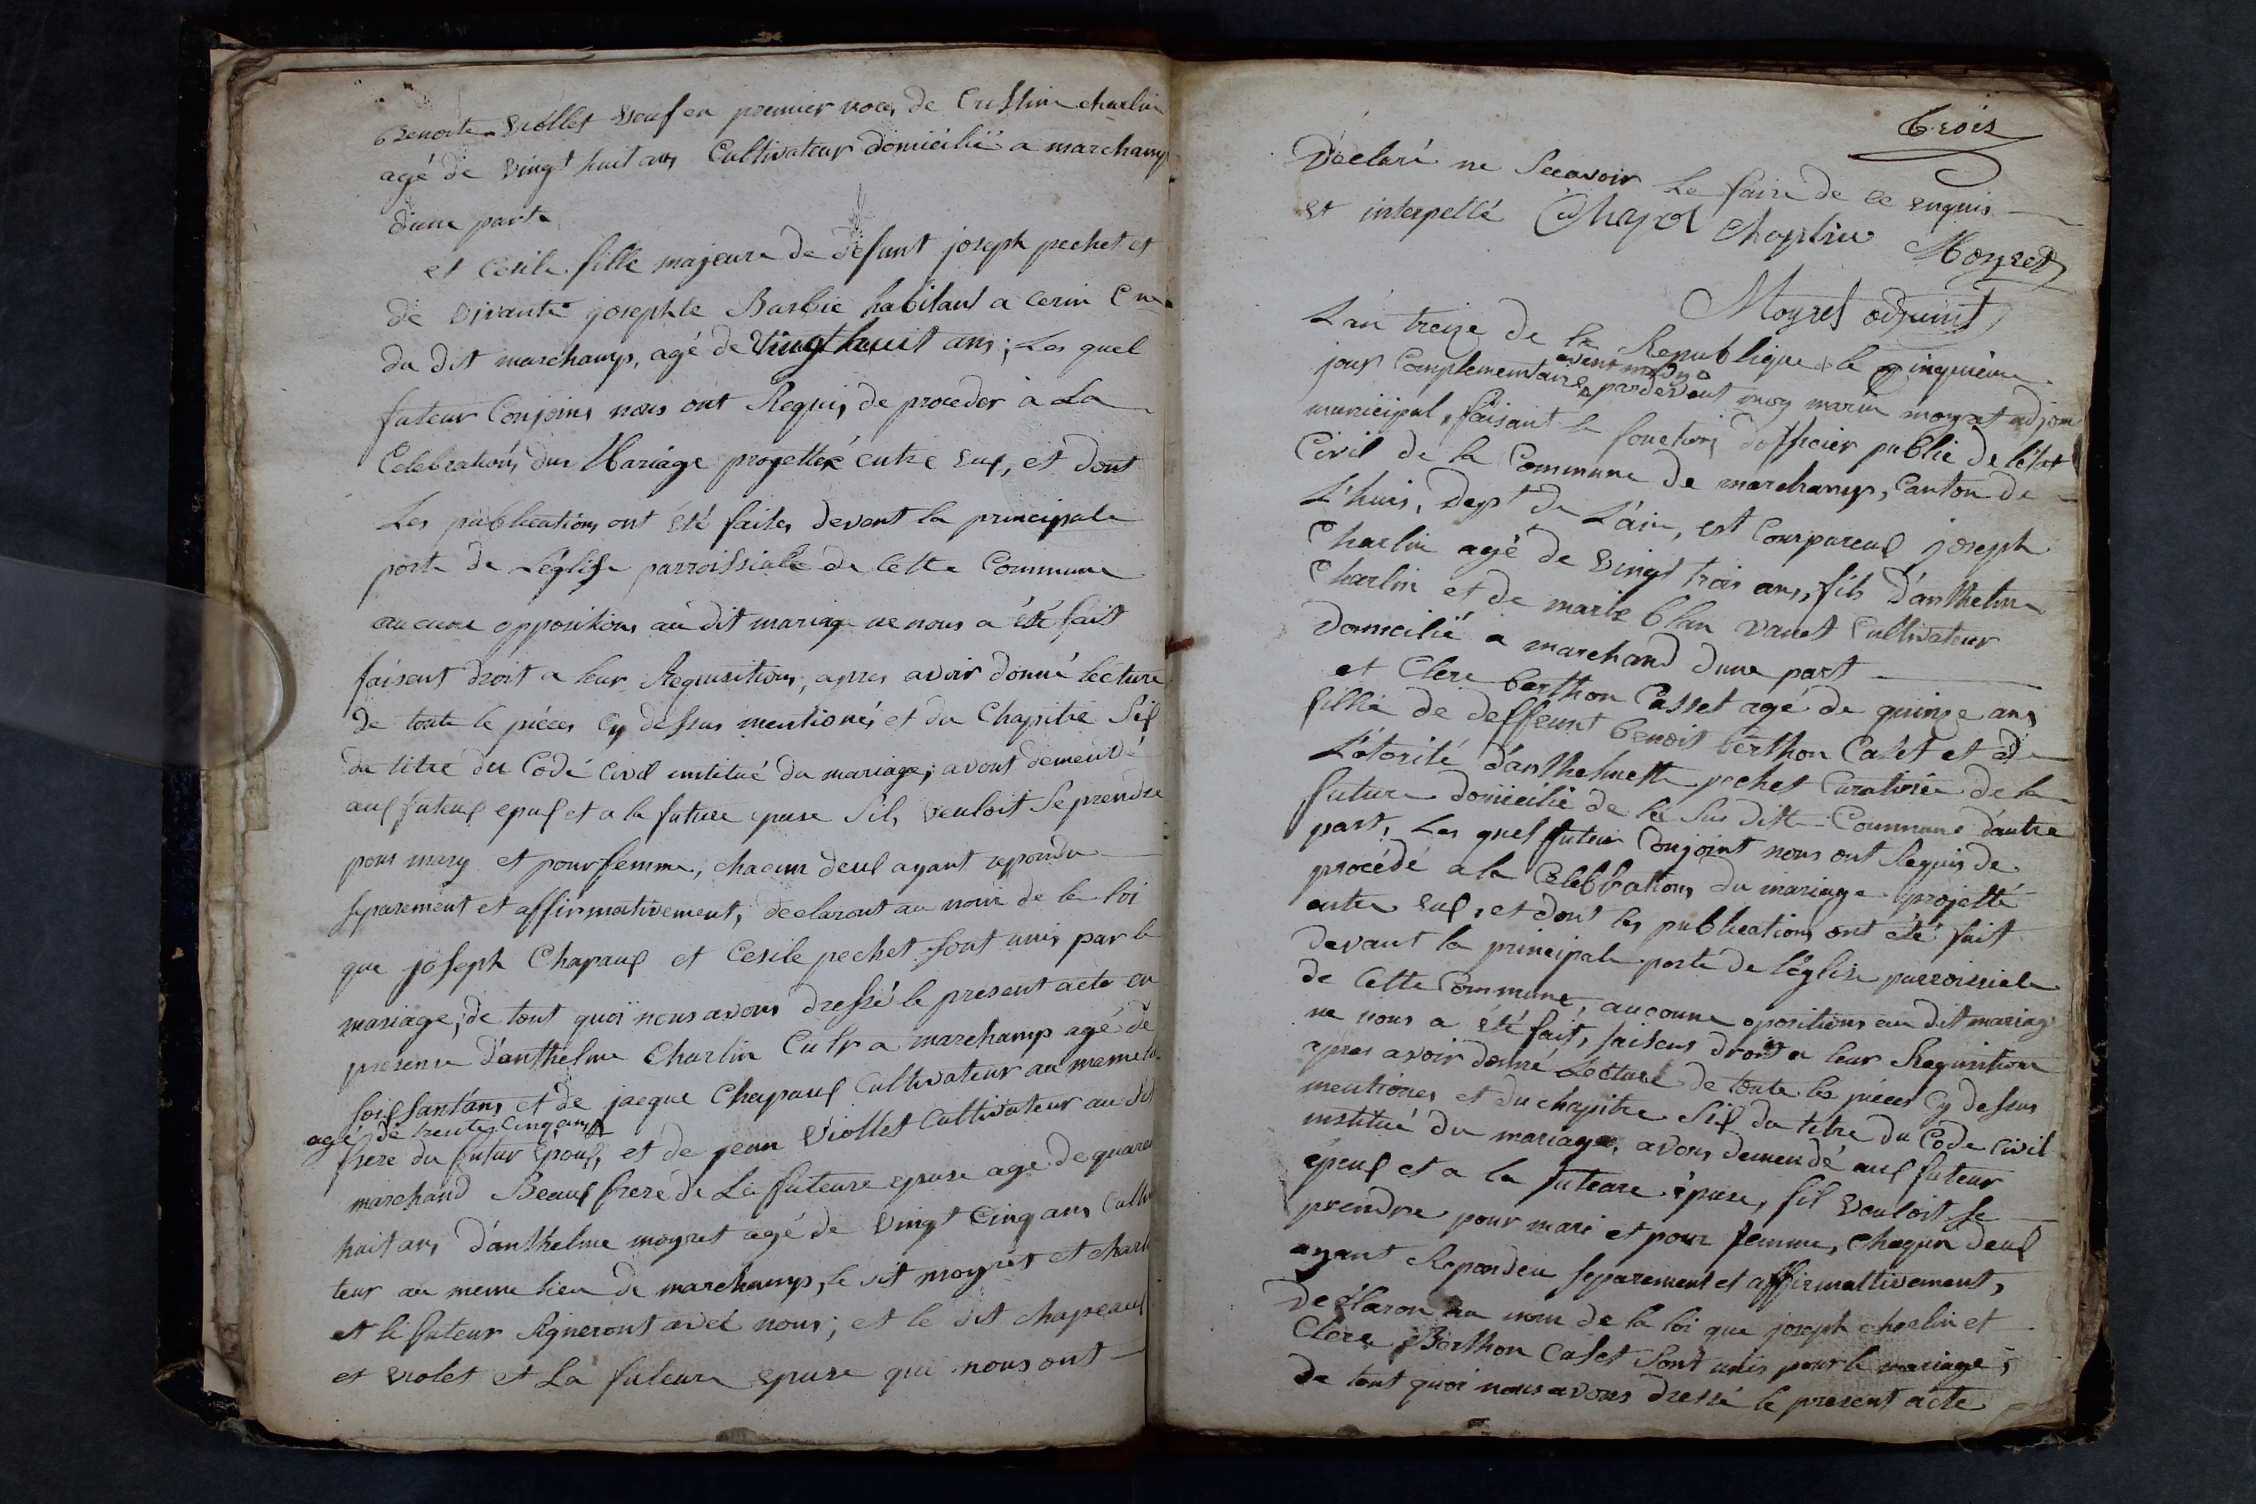 Benoite Viollet veuf en premier noce, de Cristine charlin
agé de vingt huit ans Cultivateur domicilié a marchamp
dune parte
et Cesile fille majeure de defunt joseph pechet et
de vivante josephte Barbie habitant a cerin Cne
du dit marchamp, agé de vingt huit ans; Les quel
futeur Conjoins nous ont Requis de proceder à La
Celebrations du Mariage projettée entre eux, et dont
Les publications ont été faites devent la principale
porte de Léglise parroissiale de Cette Commune
aucune oppositions au dit mariage ne nous a été fait
faisent droit a leur Requisitions, apres avoir donné lecture
de toute le piéces Cy dessus mentionés et du Chapitre Six
du titre du Codé Civil institué du mariage; avont demendé
aux futeux epux et a la future epuse Sil, veuloit Se prendre
pour mary et pour femme, chacun deux ayant repondu
separement et affirmativement, declaront au nom de la loi
que joseph Chapaux et Cesile pechet sont unis par le
mariage; de tout quoi nous avons dressé le present acte en
presence d'anthelme Charlin Cultr a marchamp agé de
soixsantans et de jacque Chapaux Cultivateur au meme lieu
agé de trente Cinq ans
frere du futur Epoux, et de jean Viollet Cultivateur au dit
marchand Beaux frere de La futeure epuse age de quarante
huit ans d'anthelme moyret agé de vingt Cinq ans Cultiva
teur au meme lieu de marchamp, le dit moyret et charlin
et le futeur Signeront avec nous; et le dit chapeaux
et violet et La futeure epuse qui nous ont
trois
Déclaré ne Scavoir Le faire de ce enquis
et interpellé Chapot Chaplin Moyret
Moyret adjoint
L'an treize de la Republique le Cinquieme
jour Complementaire avent midy pardevent moy marin moyret adjoint
municipal, faisant le fonctions dofficier public de l'état
Civil de la Commune de marchamp, Canton de
L'huis, Dept de L'ain, est Compareux joseph
Charlin agé de vingt trois ans, fils D'anthelme
Charlin et de marie blan vanet Cultivateur
Domicilié a marchand dune part
et Clere berthon Casset agé de quinze ans
fillie de deffeunt benoit berthon Casèt et de
L'otorité d'anthelmette pechet Curatrice de la
future domicilié de la Sus ditte Commune d'autre
part, Les quel futeur Conjoint nous ont Requis de
procédé a la Celebrations du mariage projetté
entre eux, et dont les publications ont été fait
devant la principale porte de l'église parroissiale
de Cette Commune, aucoune opositions au dit mariage
ne nous a été fait, faisens droit a leur Requisitions
apres avoir donné Lecture de toute les piéces Cy dessus
mentiones et du chapitre Six du titre du Code Civil
institué du mariage, avons demendé aux futeur
épeux et a la futeure épuse, sil vouloit se
prendre pour mari et pour femme, chaqun deux
ayant Repondeu separement et affirmattivement,
Declaron au nom de la loi que joseph charlin et
Clere Berthon Caset Sont unis pour le mariage;
de tout quoi nous avons dressé le present acte